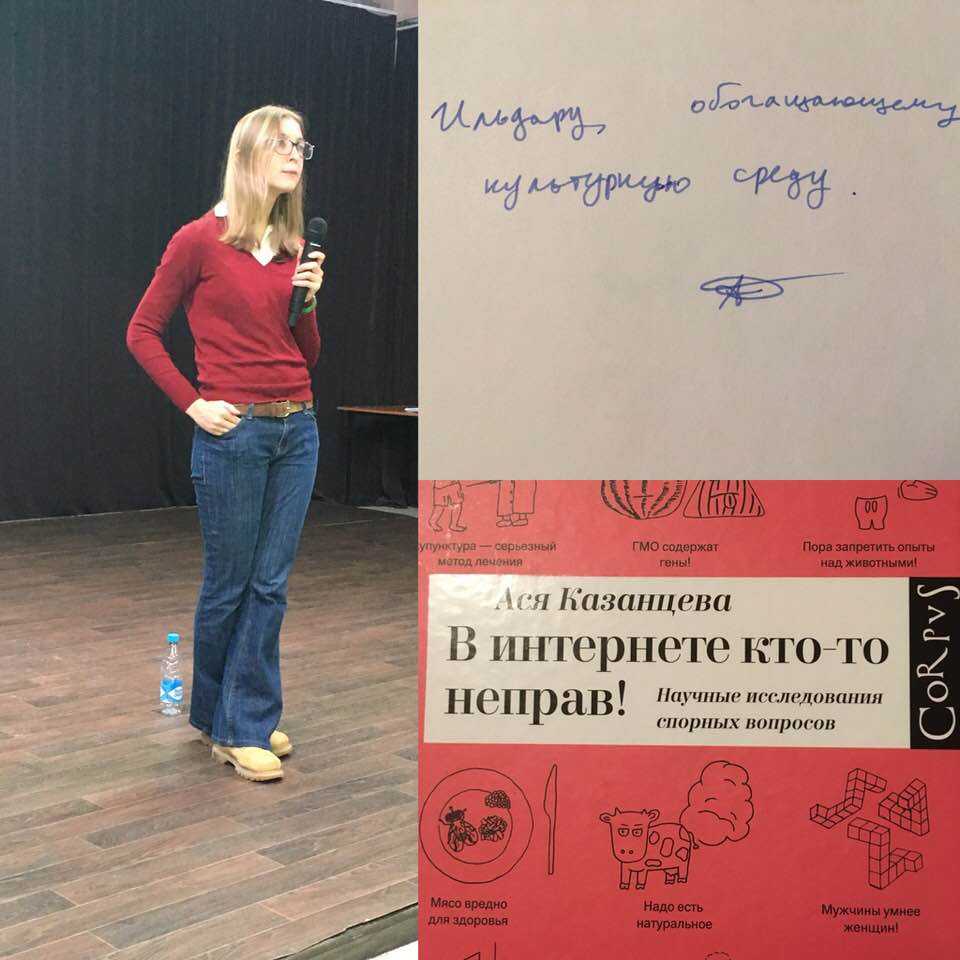 Ильдару, обогащающему
культурную среду.
упунктура — серьезный
метод лечения
ГМО содержат
гены!
Пора запретить опыты
над животными!
Ася Казанцева
В интернете кто-то
неправ!
Научные исследования
спорных вопросов
CORPVS
Мясо вредно
для здоровья
Надо есть
натуральное
Мужчины умнее
женщин!